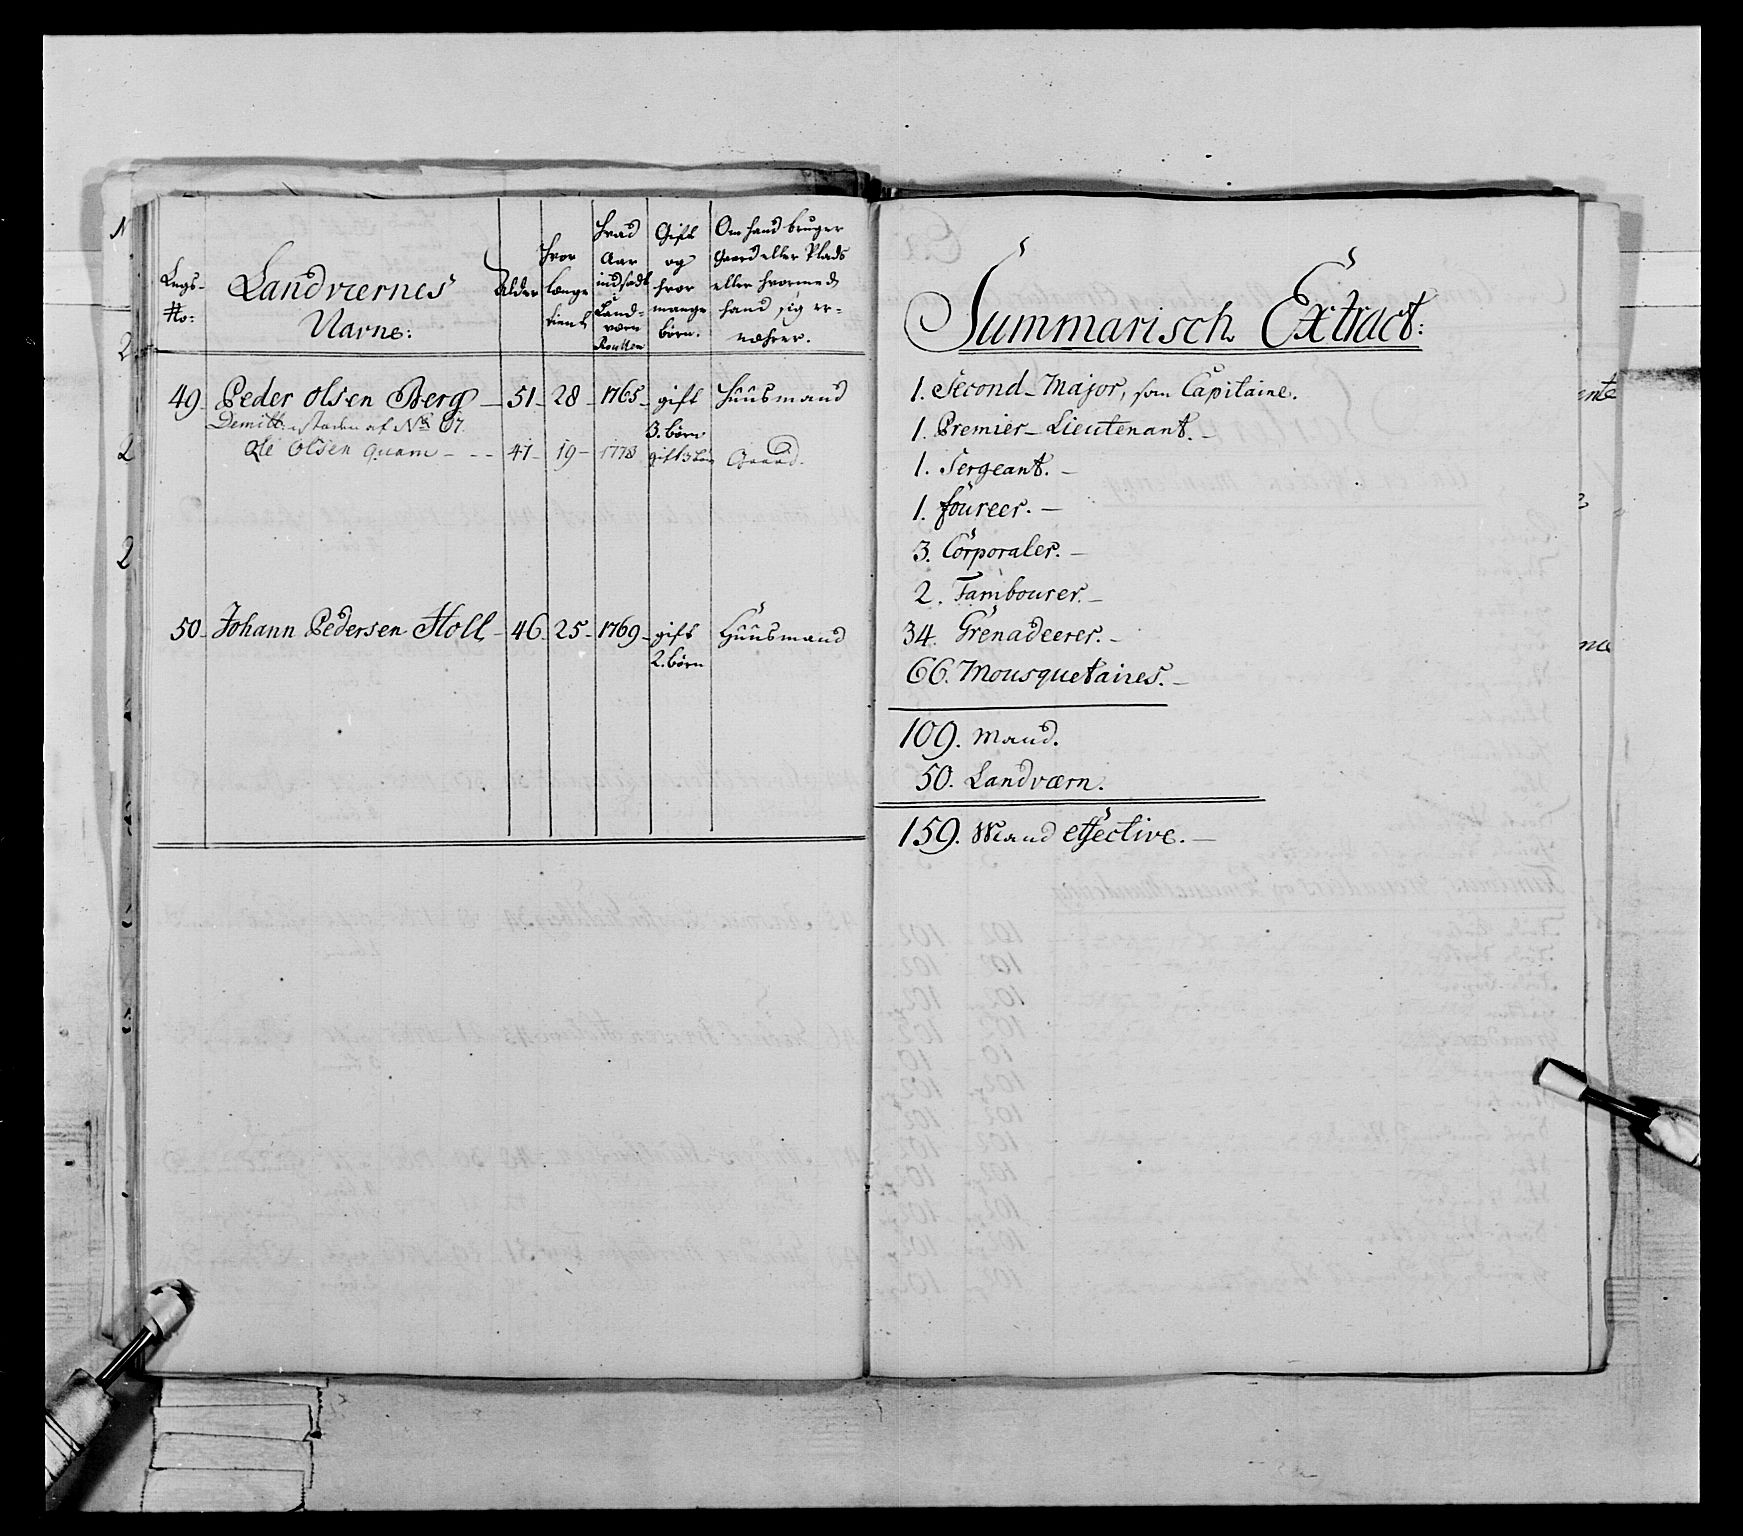 Legs-
No:
Landværnes
Navne:
Alder
hvor
længe
tient
hvad
Aar
indsadt
i
Land-
værn
Roullen
Gift
og
hvor
mange
børn.
Om hand bruger
Gaard eller Plads
eller hvormed
hand sig er-
næhrer.
49. Peder Olsen Berg – 51 – 28 – 1765 – gift Huusmand
3. børn
Demitt: istæden af No 67.
Ole Olsen Quam – – 41 – 19 – 1778 gift 3 børn Gaard.
50. Johann Pedersen Holl – 46 – 25 – 1769 – gift Huusmand
2. børn
Summarisch Extract:
1. Second-Major, som Capitaine.
1. Premier-Lieutenant. –
1. Sergeant. –
1. foureer. –
3. Corporaler. –
2. Tambourer. –
34. Grenadeerer. –
66. Mousquetaires. –
109. Mand.
50. Landværn.
159. Mand effective. –